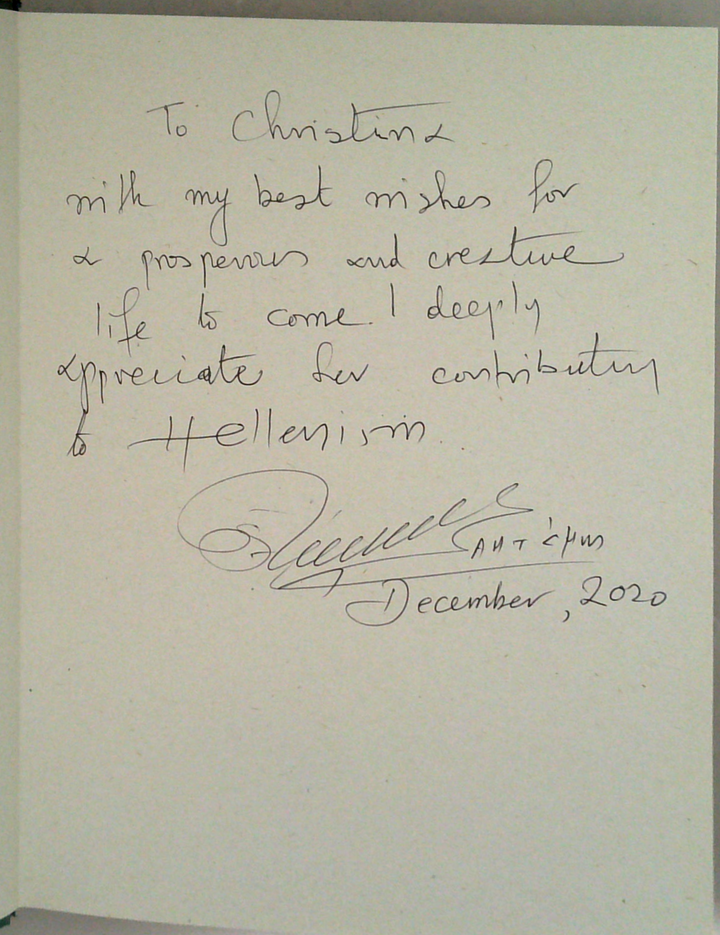 To Christina
with my best wishes for
a prosperous and creative
life to come. I deeply
appreciate her contribution
to Hellenism.
December, 2020